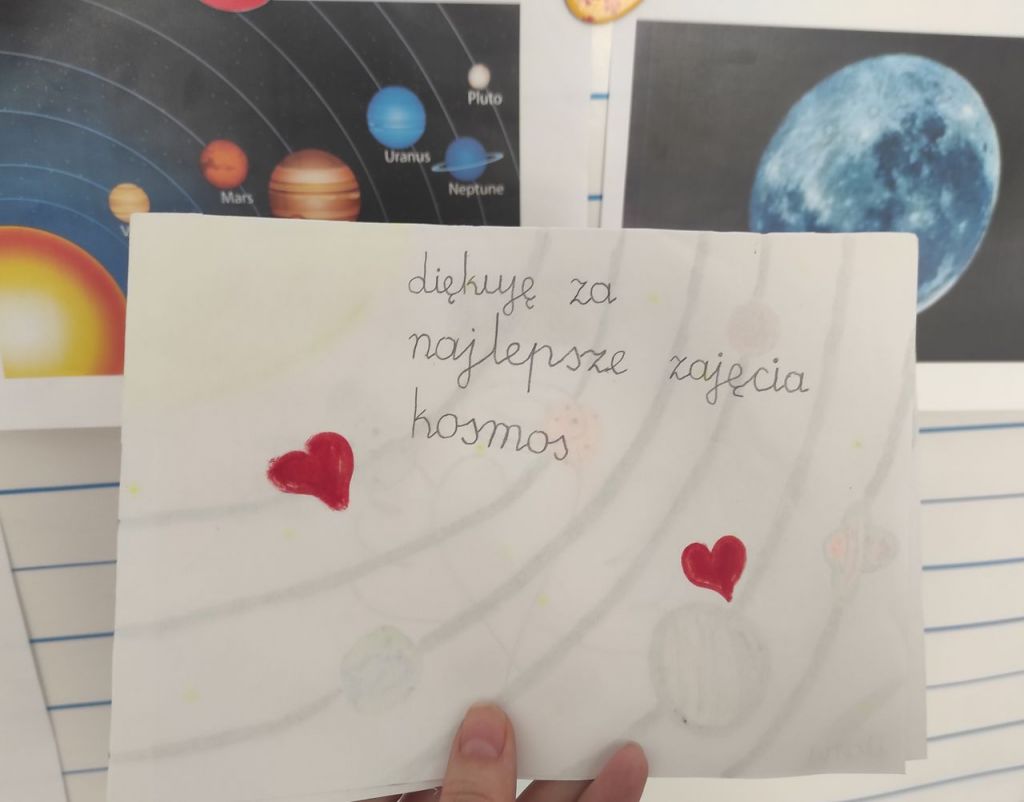 Pluto
Uranus
Neptune
Mars
diękuję za
najlepsze zajęcia
kosmos